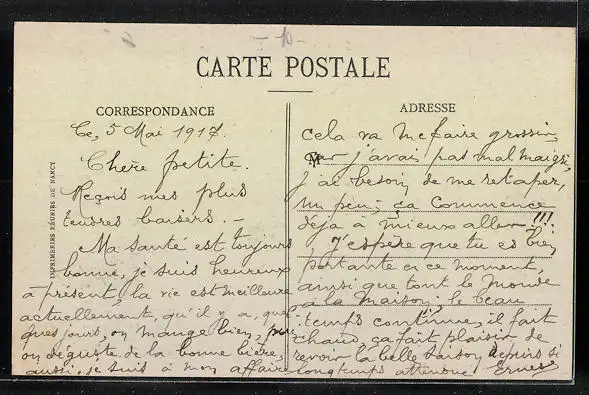 CARTE POSTALE
CORRESPONDANCE
Ce, 5 Mai 1917.
Chère petite.
Reçois mes plus
tendres baisers. -
Ma santé est toujours
bonne, je suis heureux
à présent, la vie est meilleure
actuellement, qu'il y a quel
ques jours, on mange bien,
on déguste de la bonne bière,
aussi, je suis à mon affaire
ADRESSE
cela va me faire grossir,
car j'avais pas mal maigri,
j'ai besoin de me retaper,
un peu; ça commence
déja à mieux aller!!!
J'espère que tu es bien
portante en ce moment,
ainsi que tout le monde
à la maison; le beau
temps continue, il fait
chaud, ça fait plaisir de
revoir la belle saison depuis si
longtemps attendue Ernest
IMPRIMERIES RÉUNIES DE NANCY